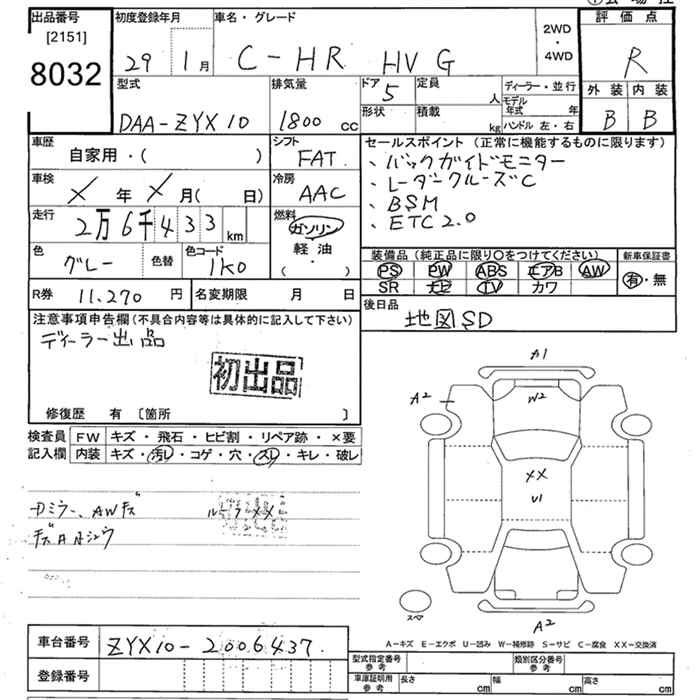 出品番号
[2151]
8032
初度登録年月
29 1月
車名・グレード
C-HR HV G
2WD
・
4WD
評価点
R
外装 内装
B B
型式
DAA-ZYX10
排気量
1800 cc
ドア
5
定員
人
形状
積載
kg
ディーラー・並行
モデル
年式 年
ハンドル 左・右
車歴
自家用・( )
シフト
FAT
車検
X 年 X 月( 日)
冷房
AAC
走行
2万6千433 km
燃料
ガソリン
軽・油
( ・ )
色
グレー
色替
色コード
1K0
R券 11,270 円
名変期限 月 日
セールスポイント (正常に機能するものに限ります)
、バックガイドモニター
、レーダークルーズC
、BSM
、ETC2.0
装備品 (純正品に限り○をつけてください)
PS PW ABS エアB AW
SR ナビ TV カワ
新車保証書
有・無
後日品
地図SD
注意事項申告欄(不具合内容等は具体的に記入して下さい)
ディーラー出品
初出品
修復歴 有 〔箇所 〕
検査員
記入欄
FW キズ・飛石・ヒビ割・リペア跡・×要
内装 キズ・汚レ・コゲ・穴・スレ・キレ・破レ
ルーフXX
A1
A2
W2
XX
U1
スペア
A2
A-キズ E-エクボ U-凹み W-補修跡 S-サビ C-腐食 XX-交換済
車台番号 ZYX10-2006437.
登録番号
型式指定番号
参考
類別区分番号
参考
車庫証明用
参考
長さ cm
幅 cm
高さ cm